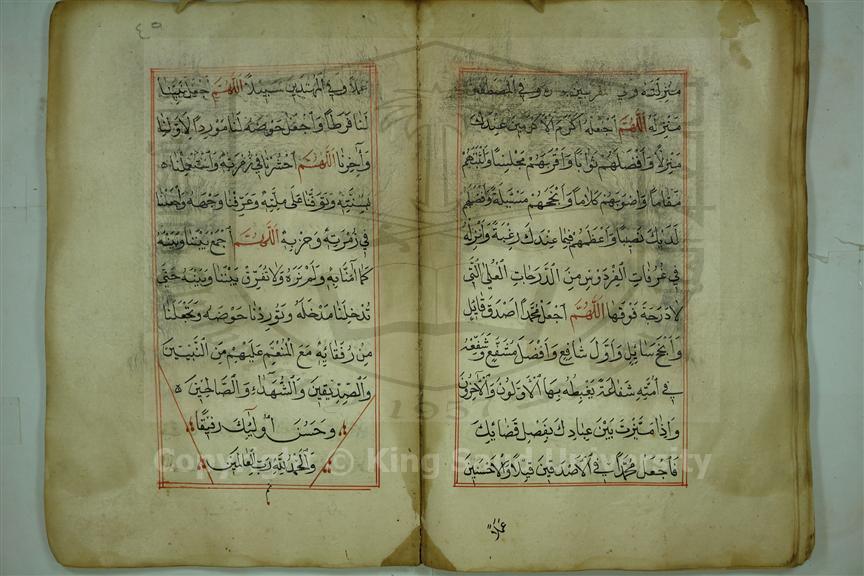 منزلته وفي المقربين داره وفي المصطفين
منزله اللَّهُمَّ اجعله أكرم الأكرمين عندك
منزلاً وأفضلهم ثواباً وأقربهم مجلساً وأثبتهم
مقاماً وأصوبهم كلاماً وأنجحهم مسئلة وأفضلهم
لديك نصيباً وأعظمهم فيما عندك رغبة وأنزله
في غرفات الفردوس من الدرجات العلى التي
لا درجة فوقها اللَّهُمَّ اجعل محمداً أصدق قائل
وأنجح سايل وأول شافع وأفضل مشفع وشفعه
في أمته شفاعة يغبطه بها الأولون والآخرون
وإذا ميزت بين عبادك بفصل قضائك
فاجعل محمداً في الأصدقين قيلاً والأحسنين
عملاً
٤٥
عملاً وفي المهتدين سبيلاً اللَّهُمَّ اجعل نبينا
لنا فرطاً واجعل حوضه لنا مورداً لأولنا
وآخرنا اللَّهُمَّ احشرنا في زمرته واستعملنا
بسنته وتوفنا على ملته وعرفنا وجهه واجعلنا
في زمرته وحزبه اللَّهُمَّ اجمع بيننا وبينه
كما آمنا به ولم نره ولا تفرق بيننا وبينه حتى
تدخلنا مدخله وتوردنا حوضه وتجعلنا
من رفقائه مع المنعم عليهم من النبيين
والصديقين والشهداء والصالحين
وحسن أولئك رفيقًا
والحمد لله رب العالمين
تم
1957
Copyright © King Saud University